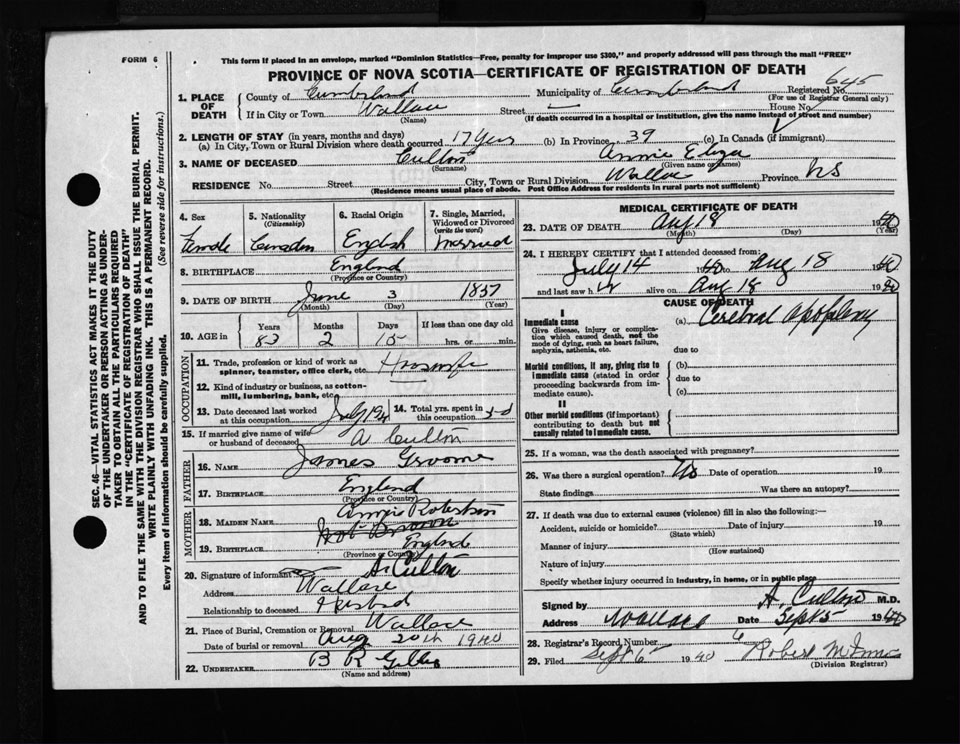 FORM 6
This form if placed in an envelope, marked "Dominion Statistics—Free, penalty for improper use $300," and properly addressed will pass through the mail "FREE"
PROVINCE OF NOVA SCOTIA—CERTIFICATE OF REGISTRATION OF DEATH
SEC. 46—VITAL STATISTICS ACT MAKES IT THE DUTY
OF THE UNDERTAKER OR PERSON ACTING AS UNDER-
TAKER TO OBTAIN ALL THE PARTICULARS REQUIRED
IN THE "CERTIFICATE OF REGISTRATION OF DEATH"
AND TO FILE THE SAME WITH THE DIVISION REGISTRAR WHO SHALL ISSUE THE BURIAL PERMIT.
WRITE PLAINLY WITH UNFADING INK. THIS IS A PERMANENT RECORD.
Every item of information should be carefully supplied. (See reverse side for instructions.)
1. PLACE OF DEATH County of Cumberland Municipality of Cumberland Registered No. 645
(For use of Registrar General only)
If in City or Town Wallace Street — House No.
(Name) (If death occurred in a hospital or institution, give the name instead of street and number)
2. LENGTH OF STAY (in years, months and days)
(a) In City, Town or Rural Division where death occurred 17 years (b) In Province 39 (c) In Canada (if immigrant)
3. NAME OF DECEASED Cullon Annie Eliza
(Surname) (Given name or names)
RESIDENCE No. Street City, Town or Rural Division Wallace Province NS
(Residence means usual place of abode. Post Office Address for residents in rural parts not sufficient)
4. Sex 5. Nationality 6. Racial Origin 7. Single, Married, Widowed or Divorced
(Citizenship) (write the word)
Female Canadian English Married
8. BIRTHPLACE England
(Province or Country)
9. DATE OF BIRTH June 3 1857
(Month) (Day) (Year)
10. AGE in Years Months Days If less than one day old
83 2 15 hrs. or min.
OCCUPATION
11. Trade, profession or kind of work as
spinner, teamster, office clerk, etc. Housewife
12. Kind of industry or business, as cotton-
mill, lumbering, bank, etc.
13. Date deceased last worked
at this occupation July 1940
14. Total yrs. spent in
this occupation
15. If married give name of wife
or husband of deceased A Cullon
FATHER
16. NAME James Groome
17. BIRTHPLACE England
(Province or Country)
MOTHER
18. MAIDEN NAME Annie Robertson
19. BIRTHPLACE Not Known England
(Province or Country)
20. Signature of informant A. Cullon
Address Wallace
Relationship to deceased Husband
21. Place of Burial, Cremation or Removal Wallace
Date of burial or removal Aug 20th 1940
22. UNDERTAKER B R
(Name and address)
MEDICAL CERTIFICATE OF DEATH
23. DATE OF DEATH Aug 18 1940
(Month) (Day) (Year)
24. I HEREBY CERTIFY that I attended deceased from:
July 14 1940 to Aug 18 1940
and last saw h er alive on Aug 18 1940
CAUSE OF DEATH
I
Immediate cause (a) Cerebral Apoplexy
Give disease, injury or complica-
tion which caused death, not the
mode of dying, such as heart failure,
asphyxia, asthenia, etc.
due to
Morbid conditions, if any, giving rise to
immediate cause (stated in order
proceeding backwards from im-
mediate cause).
(b)
due to
(c)
II
Other morbid conditions (if important)
contributing to death but not
causally related to immediate cause.
25. If a woman, was the death associated with pregnancy?
26. Was there a surgical operation? No Date of operation 19
State findings Was there an autopsy?
27. If death was due to external causes (violence) fill in also the following:—
Accident, suicide or homicide? Date of injury 19
(State which)
Manner of injury
(How sustained)
Nature of injury
Specify whether injury occurred in industry, in home, or in public place
Signed by A. Cullon M.D.
Address Wallace Date Sept 5 1940
28. Registrar's Record Number 6
29. Filed Sept 6 1940 Robert
(Division Registrar)